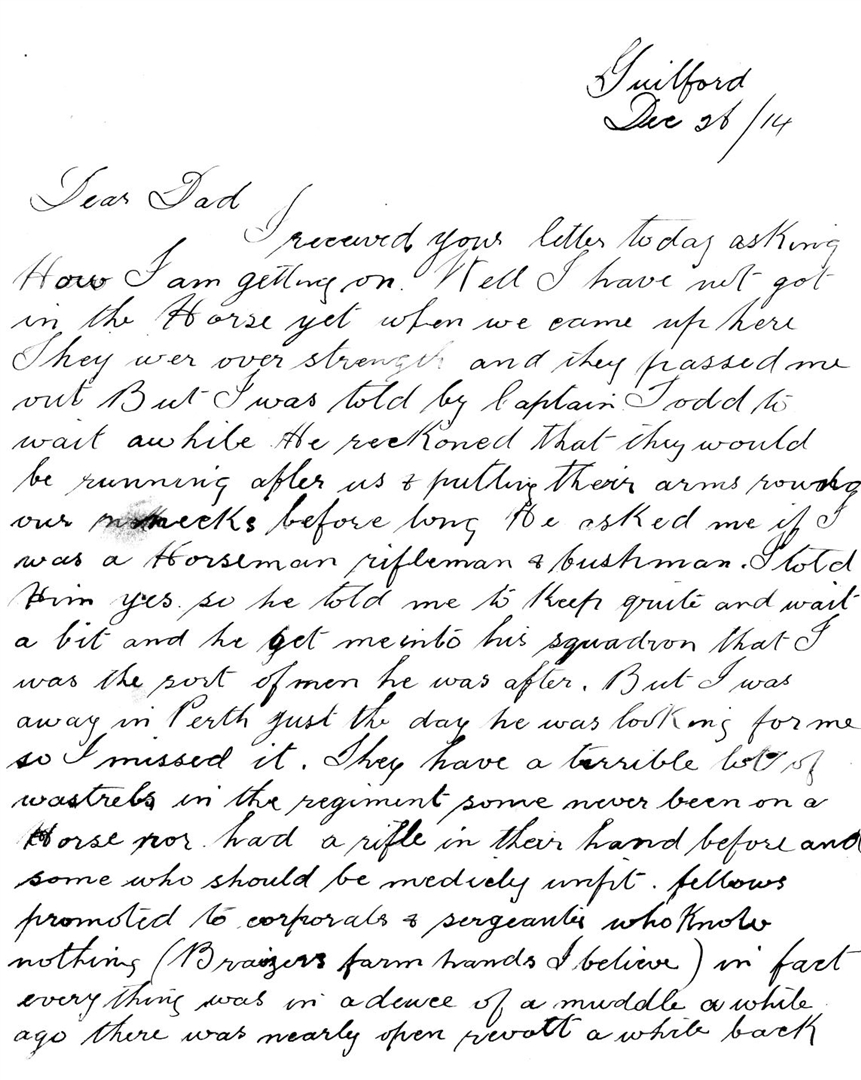 Guilford
Dec 26/14
Dear Dad
I received your letter today asking
How I am getting on. Well I have not got
in the Horse yet when we came up here
They wer over strength and they passed me
out But I was told by Captain Todd to
wait awhile He reckoned that they would
be running after us & putting their arms round
our necks before long He asked me if I
was a Horseman rifleman & bushman. I told
Him yes so he told me to keep quite and wait
a bit and he get me into his squadron that I
was the sort of men he was after. But I was
away in Perth just the day he was looking for me
so I missed it. They have a terrible lot of
wastrels in the regiment some never been on a
Horse nor had a rifle in their hand before and
some who should be medicly unfit. fellows
promoted to corporals & sergeants who know
nothing (Braziers farm hands I believe) in fact
everything was in a deuce of a muddle awhile
ago there was nearly open revolt a while back